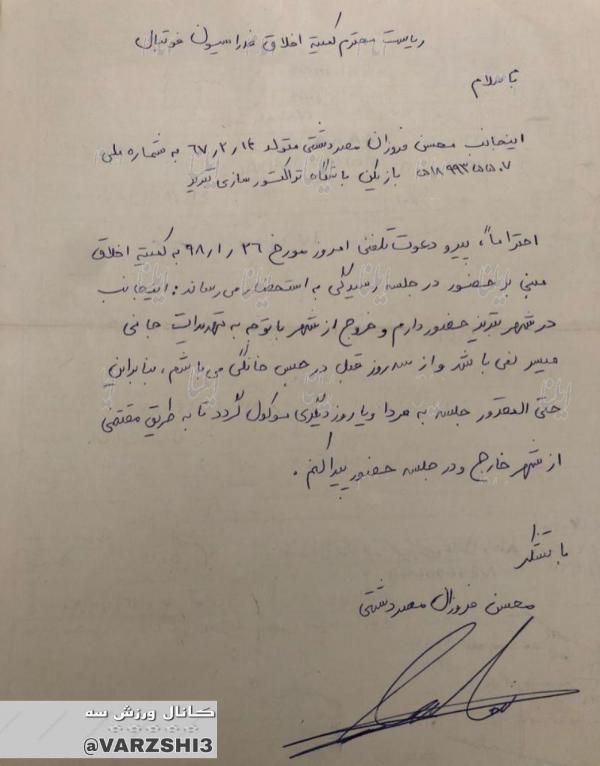 ریاست محترم کمیته اخلاق فدراسیون فوتبال
با سلام
اینجانب محسن فروزان مصیردشتی متولد ۶۷٫۲٫۱۴ به شماره ملی
بازیکن باشگاه تراکتورسازی تبریز
احتراماً، پیرو دعوت تلفنی امروز مورخ ۹۸٫۱٫۲۶ به کمیته اخلاق
مبنی بر حضور در جلسه رسیدگی به استحضار می رساند: اینجانب
در شهر تبریز حضور دارم و خروج از شهر با توجه به تهدیدات جانی
میسر نمی باشد و از سه روز قبل در حبس خانگی می باشم، بنابراین
حتی المقدور جلسه به فردا و یا روز دیگری موکول گردد تا به طریق مقتضی
از شهر خارج و در جلسه حضور پیدا کنم.
با تشکر
محسن فروزان مصیردشتی
کانال ورزش سه
@VARZSHI3